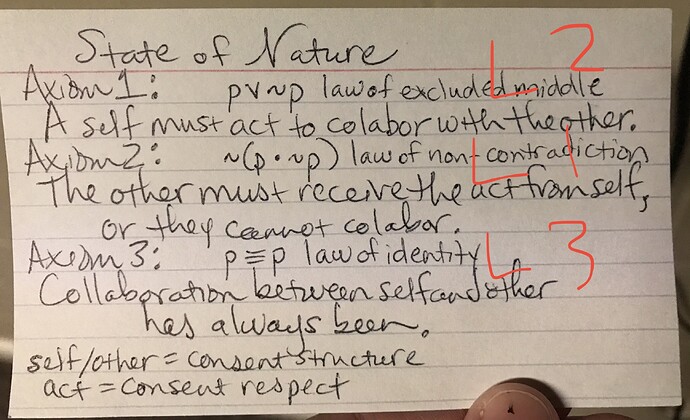 State of Nature
L2
Axiom 1: p v ~p law of excluded middle
A self must act to colabor with the other.
Axiom 2: ~(p • ~p) law of non-contradiction
L1
The other must receive the act from self,
or they cannot colabor.
Axiom 3: p ≡ p law of identity
L3
Collaboration between self and other
has always been.
self/other = consent structure
act = consent respect